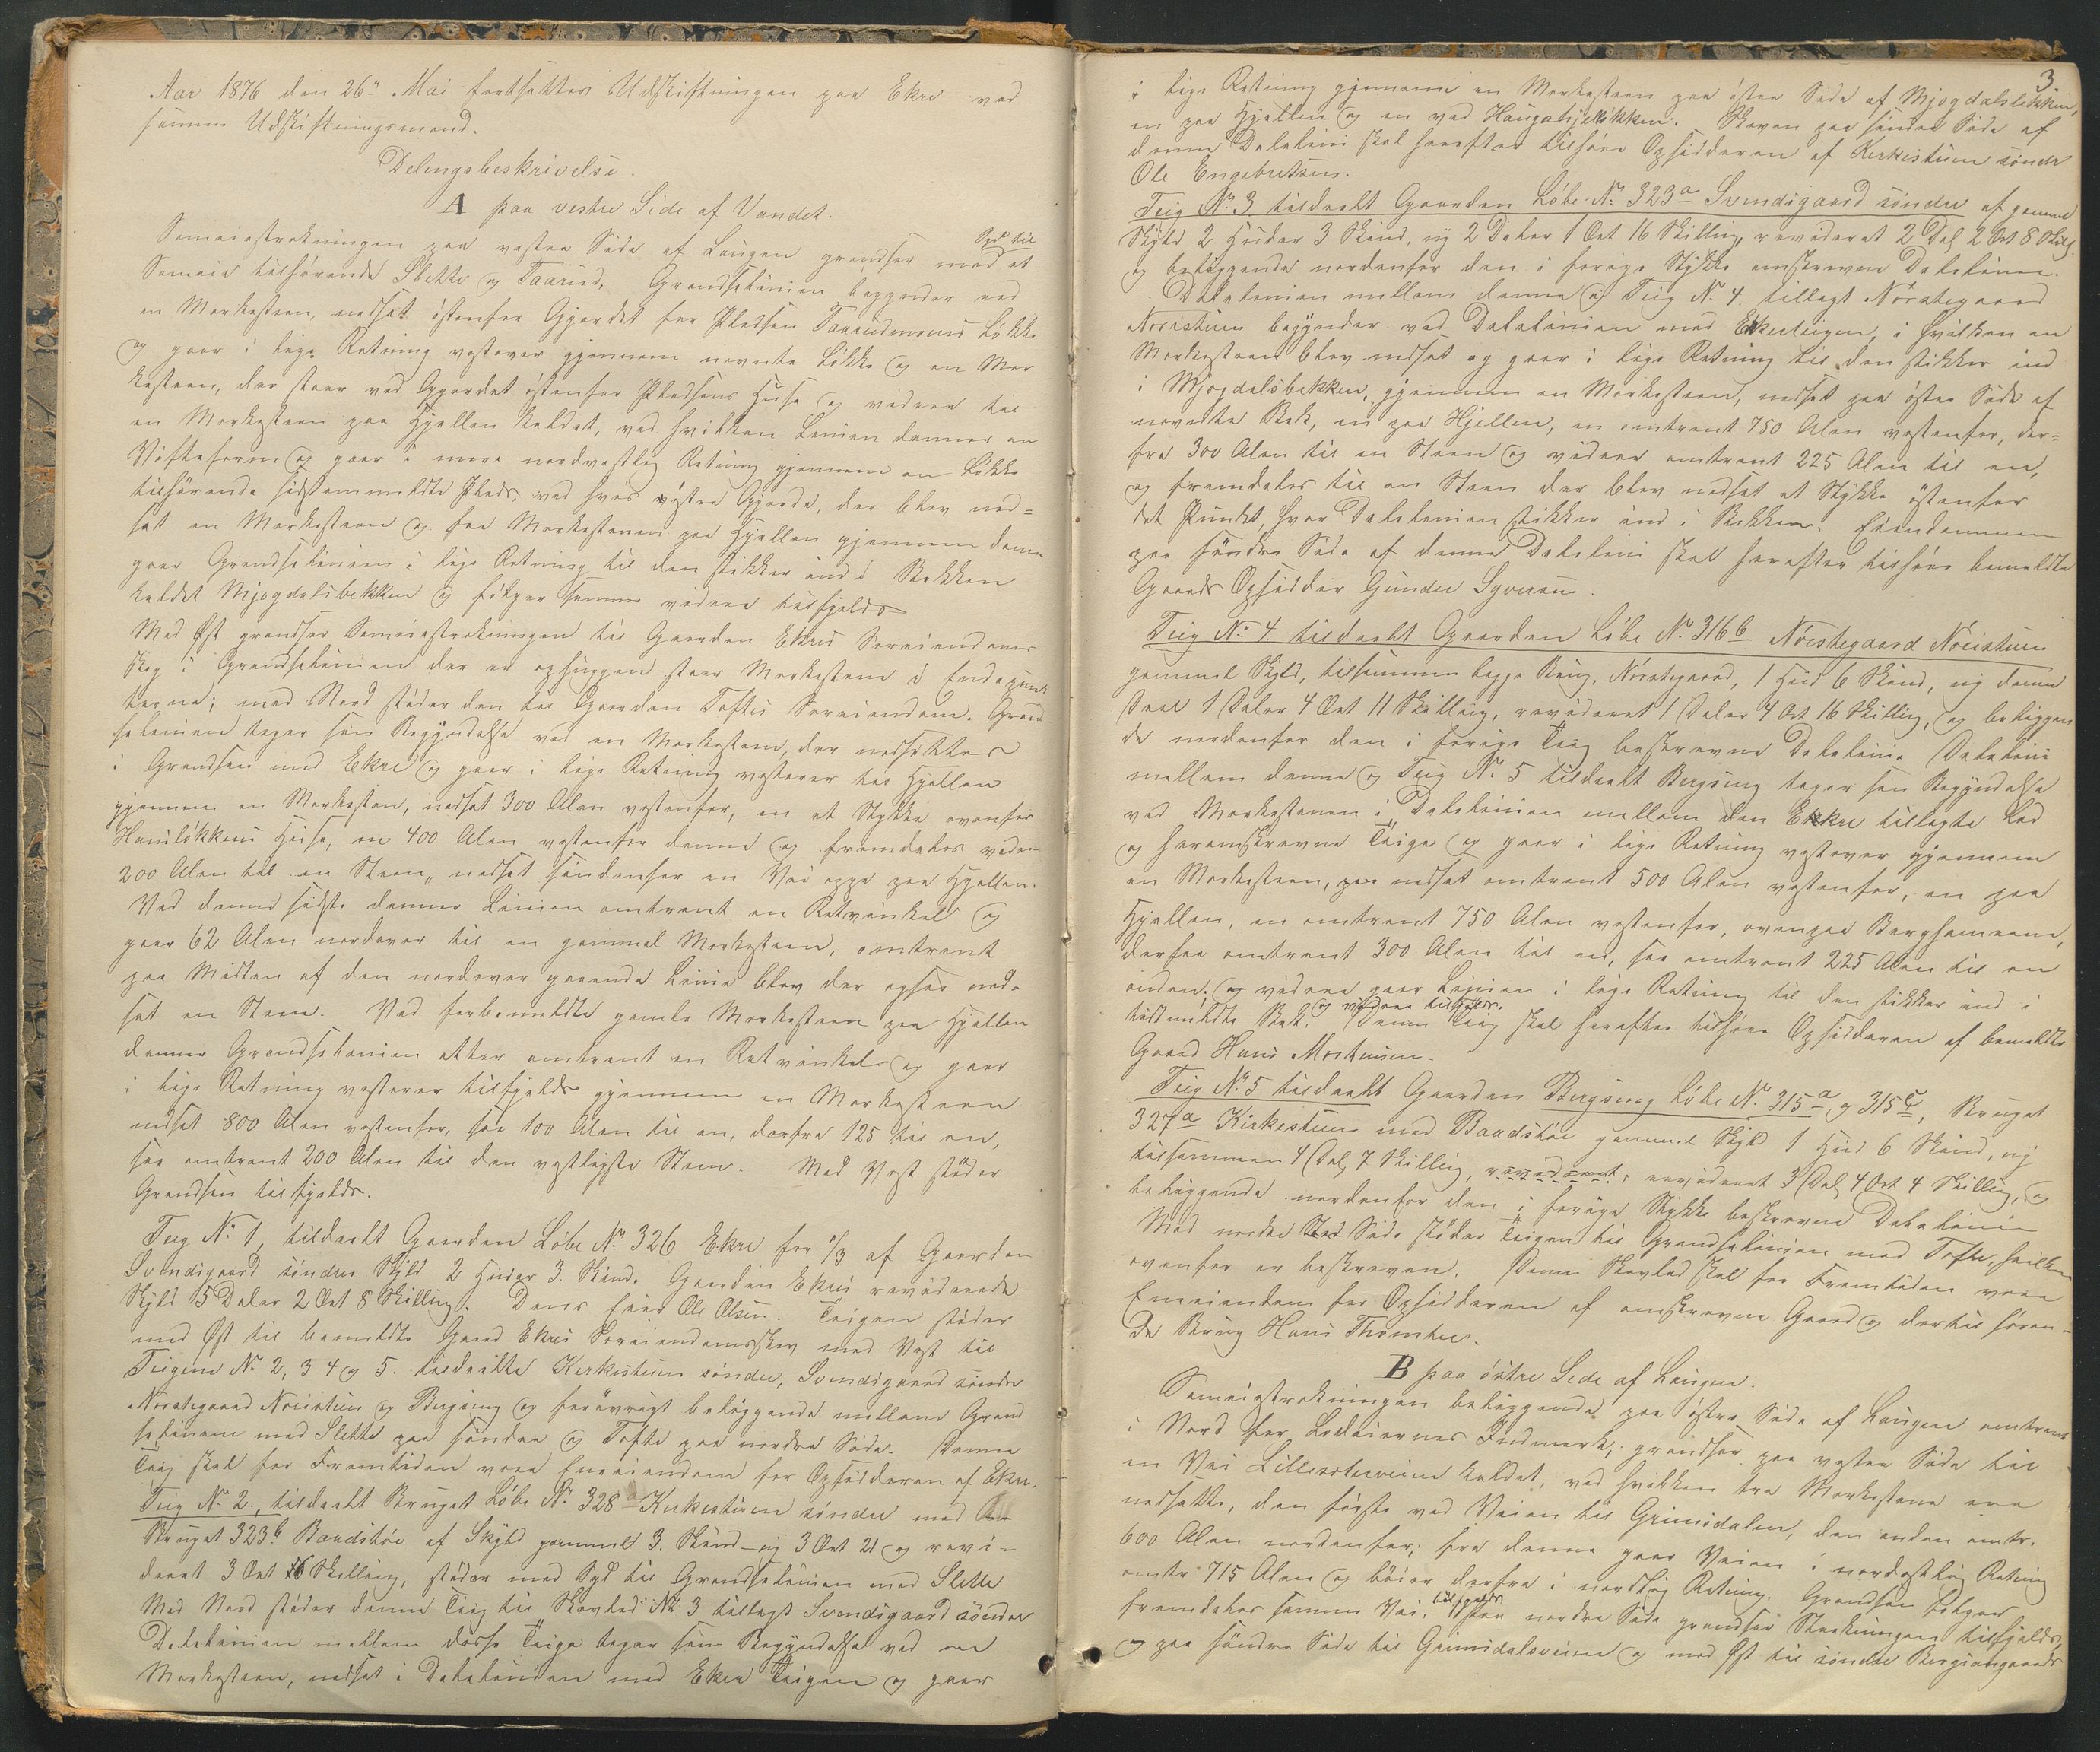 Aar 1876 den 26de Mai fortsattes Udskiftningen paa Ekre ved
samme Udskiftningsmænd.
Delingsbeskrivelse.
A paa vestre Side af Vandet.
Sameiestrækningen paa vestre Side af Laugen grændser mod Syd til et
Sameie tilhørende Slette og Taarud. Grændselinien begynder ved
en Merkesteen, nedsat østenfor Gjerdet for Pladsen Taarudmoens Løkke
og gaar i lige Retning vestover gjennem nævnte Løkke og en Mer
kesteen, der staar ved Gjerdet østenfor Pladsens Huse og videre til
en Merkesteen paa Hjellen kaldet, ved hvilken Linien danner en
Vifteform og gaar i mere nordvestlig Retning gjennem en Løkke
tilhørende sidstanmeldte Plads, ved hvis vestre Gjerde, der blev ned=
sat en Merkesteen og fra Merkestenen paa Hjellen gjennem denne
gaar Grændselinien i lige Retning til den stikker ind i Bækken
kaldet Mjogdalsbekken og følger samme videre tilfjelds
Mod Øst grændser Sameiestrækningen til Gaarden Ekres Særeiendoms
skog i Grændselinien der er ophuggen staar Merkestene i Endepunk
terne; mod Nord støder den til Gaarden Toftes Særeiendom. Grænd
selinien tager sin Begyndelse ved en Merkesteen, der nedsattes
i Grændsen med Ekre og gaar i lige Retning vestover til Hjellen
gjennem en Merkesteen, nedsat 300 Alen vestenfor, en et Stykke ovenfor
Hansløkkens Huse, en 400 Alen vestenfor denne og fremdeles videre
200 Alen til en Steen, nedsat søndenfor en Vei oppe paa Hjellen.
Ved denne sidste danner Linien omtrent en Retvinkel og
gaar 62 Alen nordover til en gammel Merkesteen, omtrent
paa Midten af den nordover gaaende Linie blev der ogsaa ned-
sat en Steen. Ved forbemeldte gamle Merkesteen paa Hjellen
danner Grændselinien atter omtrent en Retvinkel og gaar
i lige Retning vestover tilfjelds gjennem en Merkesteen
nedsat 800 Alen vestenfor, saa 100 Alen til en, derfra 125 til en,
saa omtrent 200 Alen til den vestligste Steen. Mod Vest støder
Grændsen tilfjelds.
Teig No 1, tildeelt Gaarden Løbe No 326 Ekre for 1/3 af Gaarden
Svendsgaard søndre Skyld 2 Huder 3. Skind. Gaarden Ekres reviderede
Skyld 5 Daler 2 Ort 8 Skilling. Dens Eier Ole Olsen. Teigen støder
mod Øst til bemeldte Gaard Ekres Særeiendomsskov mod Vest til
Teigene No 2, 3 4 og 5. tildeelte Kirkestuen søndre, Svendsgaard søndre
Nørstegaard Nordstuen og Bergseng og forøvrigt beliggende mellem Grænd
selinierne med Slette paa søndre og Tofte paa nordre Side. Denne
Teig skal for Fremtiden være Eneeiendom for Opsidderen af Ekre.
Teig No 2., tildeelt Bruget Løbe No 328a Kirkestuen søndre med
Bruget 323b Baadstøe af Skyld gammel 3. Skind – ny 3 Ort 21 og revi-
deret 3 Ort 16 Skilling, støder mod Syd til Grændselinien med Slette
Mod Nord støder denne Teig til Skovlod No 3 tillagt Svendsgaard søndre
Delelinien mellem disse Teige tager sin Begyndelse ved en
Merkesteen, nedsat i Delelinien med Ekre Teigen og gaar
3
i lige Retning gjennem en Merkesteen paa østre Side af Mjogdalsbekken,
en paa Hjellen og en ved Haugahjelløkken. Skoven paa søndre Side af
denne Delelinie skal herefter tilhøre Opsidderen af Kirkestuen søndre
Ole Engebretsen.
Teig No 3 tildeelt Gaarden Løbe No 323a Svendsgaard søndre af gammel
Skyld 2 Huder 3 Skind, ny 2 Daler 1 Ort 16 Skilling, revideret 2 Dal 2 Ort 8 Skill.
og beliggende nordenfor den i forrige Stykke omskrevne Delelinie.
Delelinien mellem denne og Teig No 4. tillagt Nørstegaard
Nordstuen begynder ved Delelinien med Ekreteigen, i hvilken en
Merkesteen blev nedsat og gaar i lige Retning til den stikker ind
i Mjogdalsbekken, gjennem en Merkesteen, nedsat paa østre Side af
nævnte Bæk, en paa Hjellen, en omtrent 750 Alen vestenfor, der=
fra 300 Alen til en Steen og videre omtrent 225 Alen til en,
og fremdeles til en Steen der blev nedsat et Stykke østenfor
det Punkt, hvor Delelinien stikker ind i Bækken. Eiendommen
paa søndre Side af denne Delelinie skal herefter tilhøre bemeldte
Gaards Opsidder Gunder Syversen.
Teig No 4. tildeelt Gaarden Løbe No 316b Nørstegaard Nordstuen
gammel Skyld, tilsammen begge Brug, Nørstegaard, 1 Hud 6 Skind, ny denne
Deel 1 Daler 4 Ort 11 Skilling, revideret 1 Daler 4 Ort 16 Skilling, og beliggen
de nordenfor den i forrige Teig beskrevne Delelinie. Delelinie
mellem denne og Teig No 5 tildeelt Bergseng tager sin Begyndelse
ved Merkestenen i Delelinien mellem den Ekre tillagte Lod
og heromskrevne Teige og gaar i lige Retning vestover gjennem
en Merkesteen, nedsat omtrent 500 Alen vestenfor, en paa
Hjellen, en omtrent 750 Alen vestenfor, ovenpaa Berghammeren,
derfra omtrent 300 Alen til en, saa omtrent 225 Alen til en
anden; og videre gaar Linien i lige Retning til den stikker ind i
sidstmeldte Bæk. og videre tilfjelds. Denne Teig skal herefter tilhøre Opsidderen af bemeldte
Gaard Hans Mortensen.
Teig No 5 tildeelt Gaarden Bergseng Løbe No 315a og 315c, Bruget
327a Kirkestuen med Baadstøe gammel Skyld 1 Hud 6 Skind, ny
tilsammen 4 Dal, 7 Skilling, revideret, revideret 3 Dal 4 Ort 4 Skilling, og
beliggende nordenfor den i forrige Stykke beskrevne Delelinie
Mod nordre Side støder Teigen til Grændselinien med Tofte, hvilken
ovenfor er beskreven. Denne Skovlod skal for Fremtiden være
Eneeiendom for Opsidderen af omskrevne Gaard og dertil høren-
de Brug Hans Thomter.
B paa østre Side af Laugen.
Sameiestrækningen beliggende paa østre Side af Laugen omtrent
i Nord for Lodeiernes Indmark, grændser paa vestre Side til
en Vei Lillesæterveien kaldet, ved hvilken tre Merkestene ere
nedsatte, den første ved Veien til Grimsdalen, den anden omtr.
600 Alen nordenfor; fra denne gaar Veien i nordostlig Retning
omtr 715 Alen og bøier derfra i nordlig Retning. Grændsen følger
fremdeles samme Vei tilfjelds. Paa nordre Side grændser Strækningen tilfjelds,
og paa søndre Side til Grimsdalsveien og mod Øst til søndre Bergsengaards